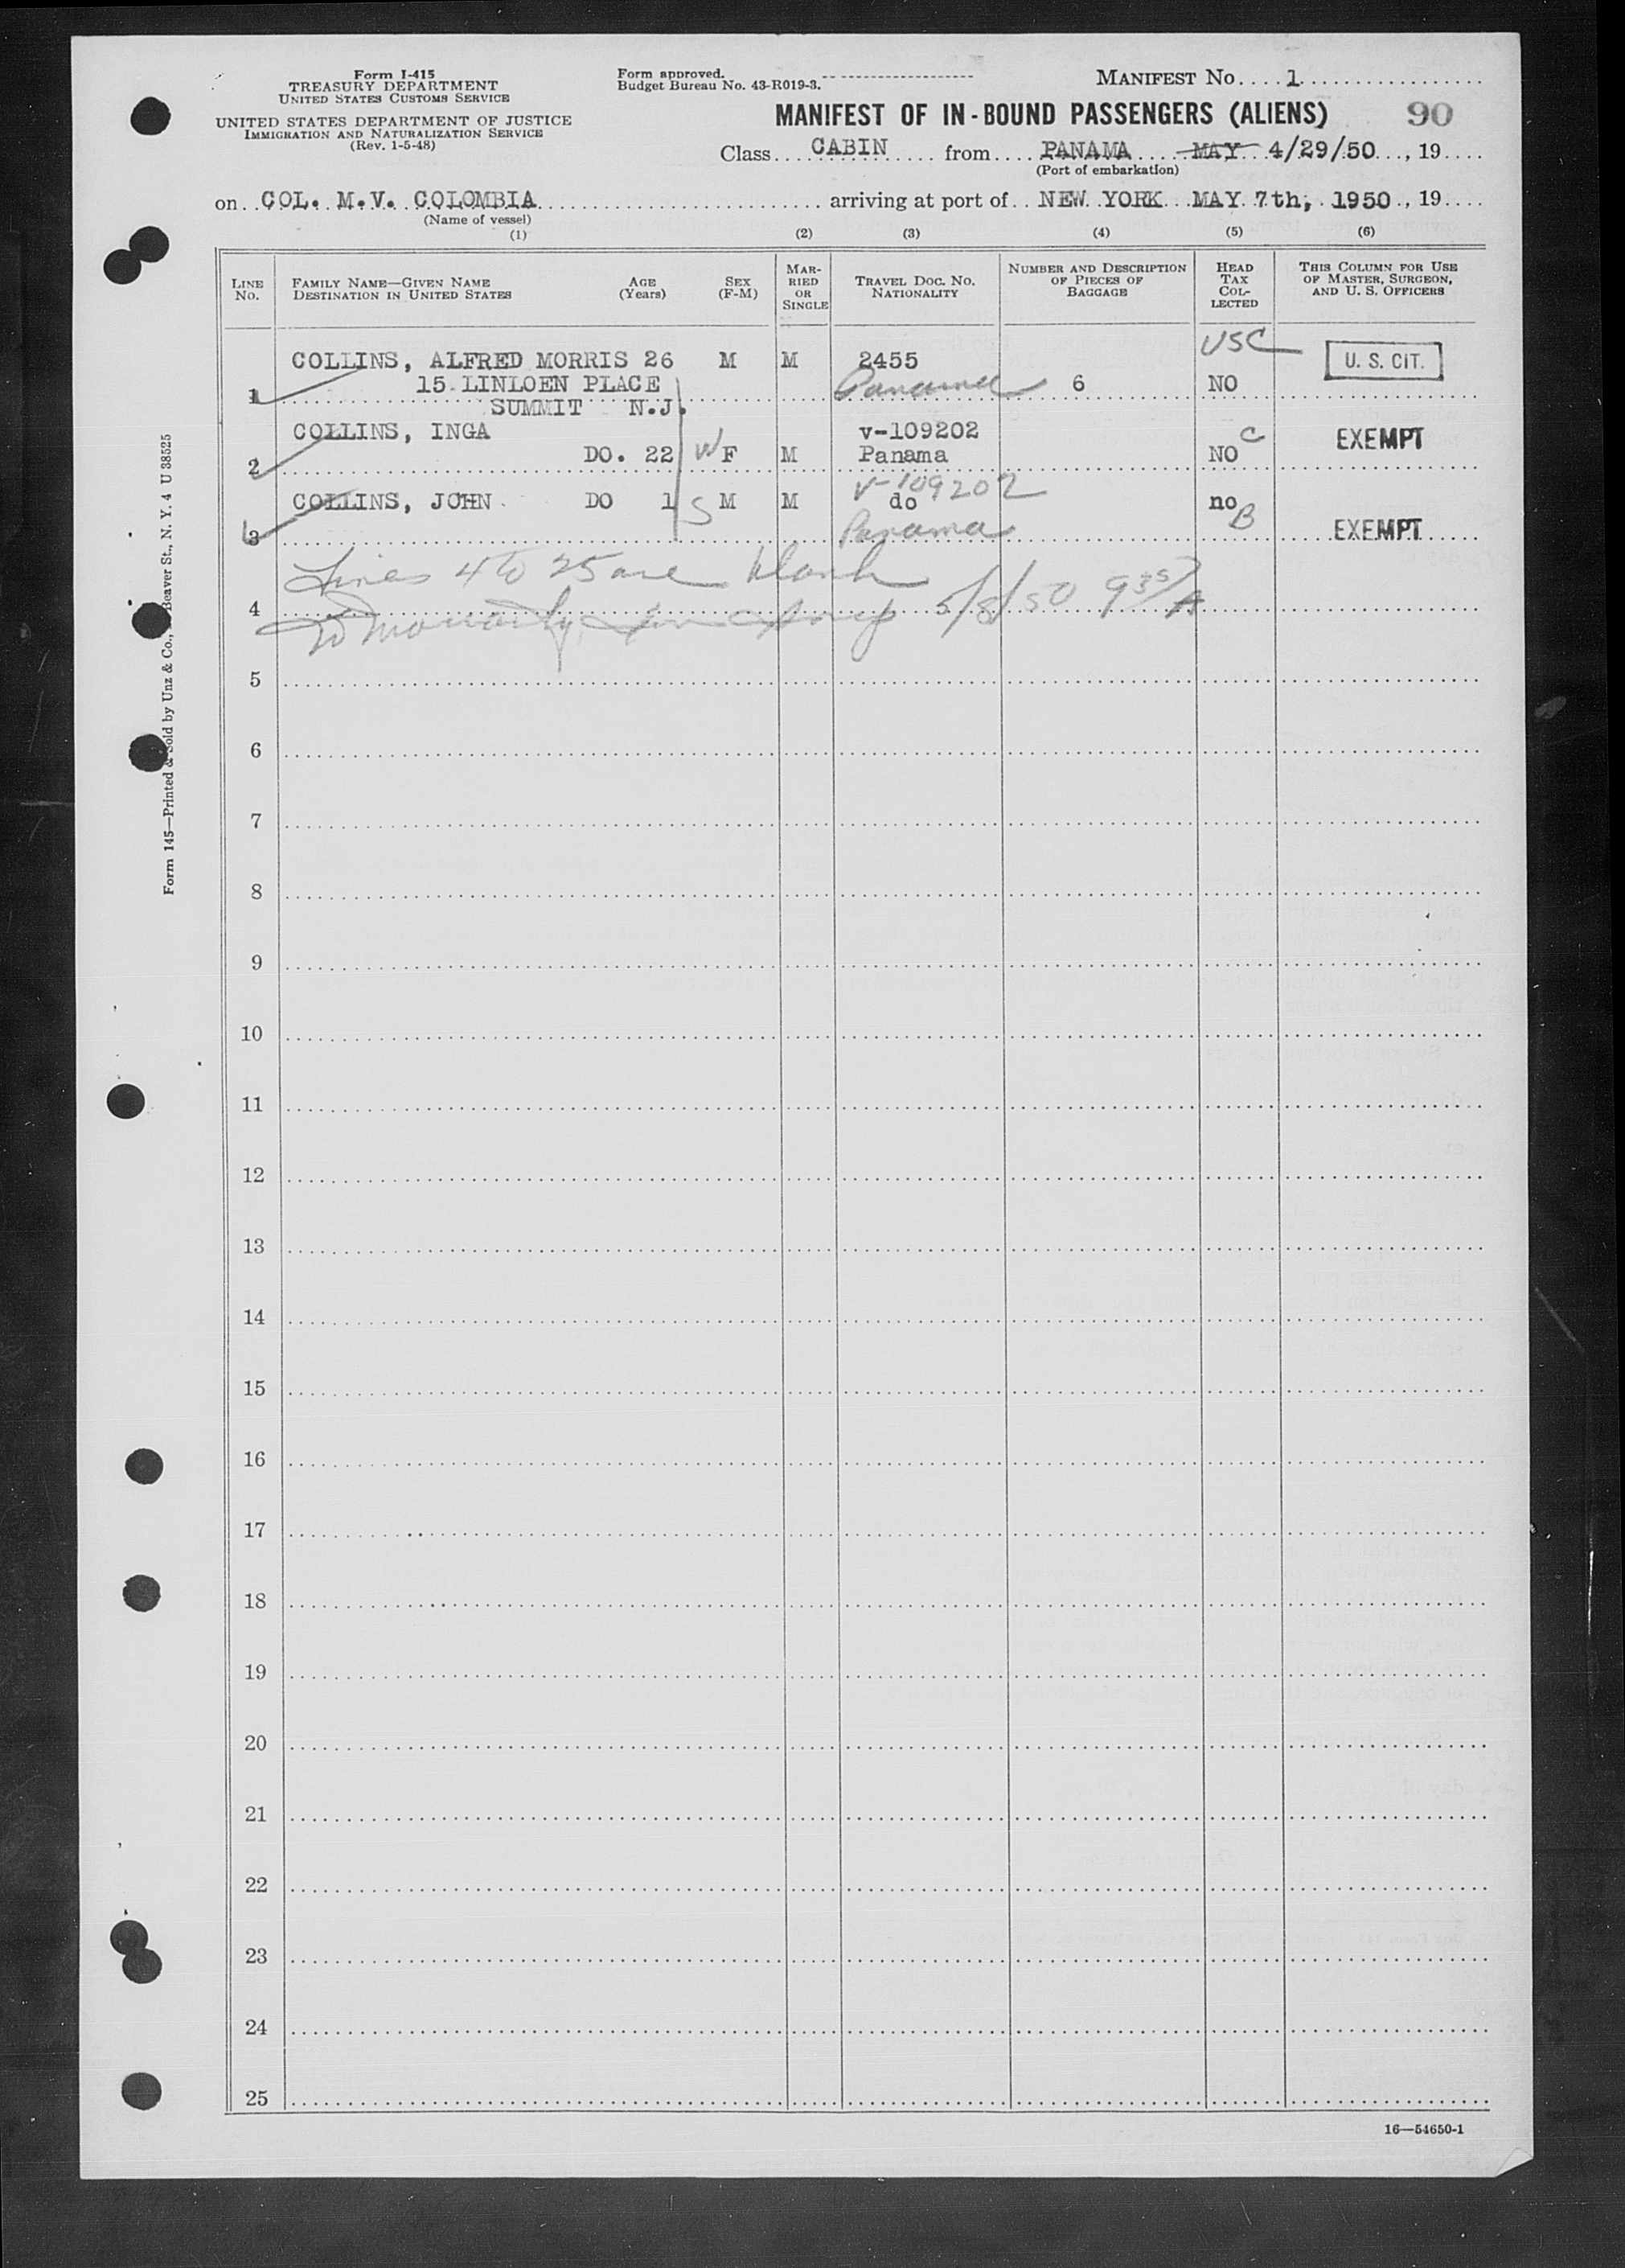 Form I-415
TREASURY DEPARTMENT
UNITED STATES CUSTOMS SERVICE
UNITED STATES DEPARTMENT OF JUSTICE
IMMIGRATION AND NATURALIZATION SERVICE
(Rev. 1-5-48)
Form approved.
Budget Bureau No. 43-R019-3.
MANIFEST No. 1
MANIFEST OF IN-BOUND PASSENGERS (ALIENS) 90
Class CABIN from PANAMA MAY 4/29/50, 19
(Port of embarkation)
on COL. M.V. COLOMBIA arriving at port of NEW YORK MAY 7th, 1950, 19
(Name of vessel)
(1) (2) (3) (4) (5) (6)
LINE No. FAMILY NAME—GIVEN NAME DESTINATION IN UNITED STATES AGE (Years) SEX (F-M) MARRIED OR SINGLE TRAVEL DOC. NO. NATIONALITY NUMBER AND DESCRIPTION OF PIECES OF BAGGAGE HEAD TAX COLLECTED THIS COLUMN FOR USE OF MASTER, SURGEON, AND U. S. OFFICERS
USC
COLLINS, ALFRED MORRIS 26 M M 2455 U. S. CIT.
1 15 LINLOEN PLACE 6 NO
SUMMIT N.J.
COLLINS, INGA v-109202 C EXEMPT
2 DO. 22 W F M Panama NO
V-109202
COLLINS, JOHN DO 1 S M M do no B
3 Panama EXEMPT
Lines 4 to 25 are blank
4 5/8/50 9 35/A
5
6
7
8
9
10
11
12
13
14
15
16
17
18
19
20
21
22
23
24
25
16—54650-1
Form 145—Printed & Sold by Unz & Co., Beaver St., N. Y. 4 U 38525